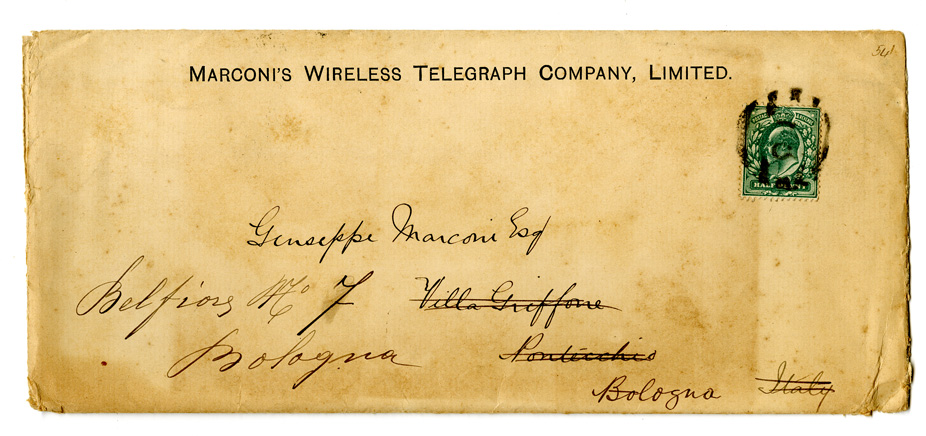 54
MARCONI'S WIRELESS TELEGRAPH COMPANY, LIMITED.
HALFPENNY
Giuseppe Marconi Esq
Belfiore No 7 Villa Griffone
Bologna Pontecchio
Bologna Italy